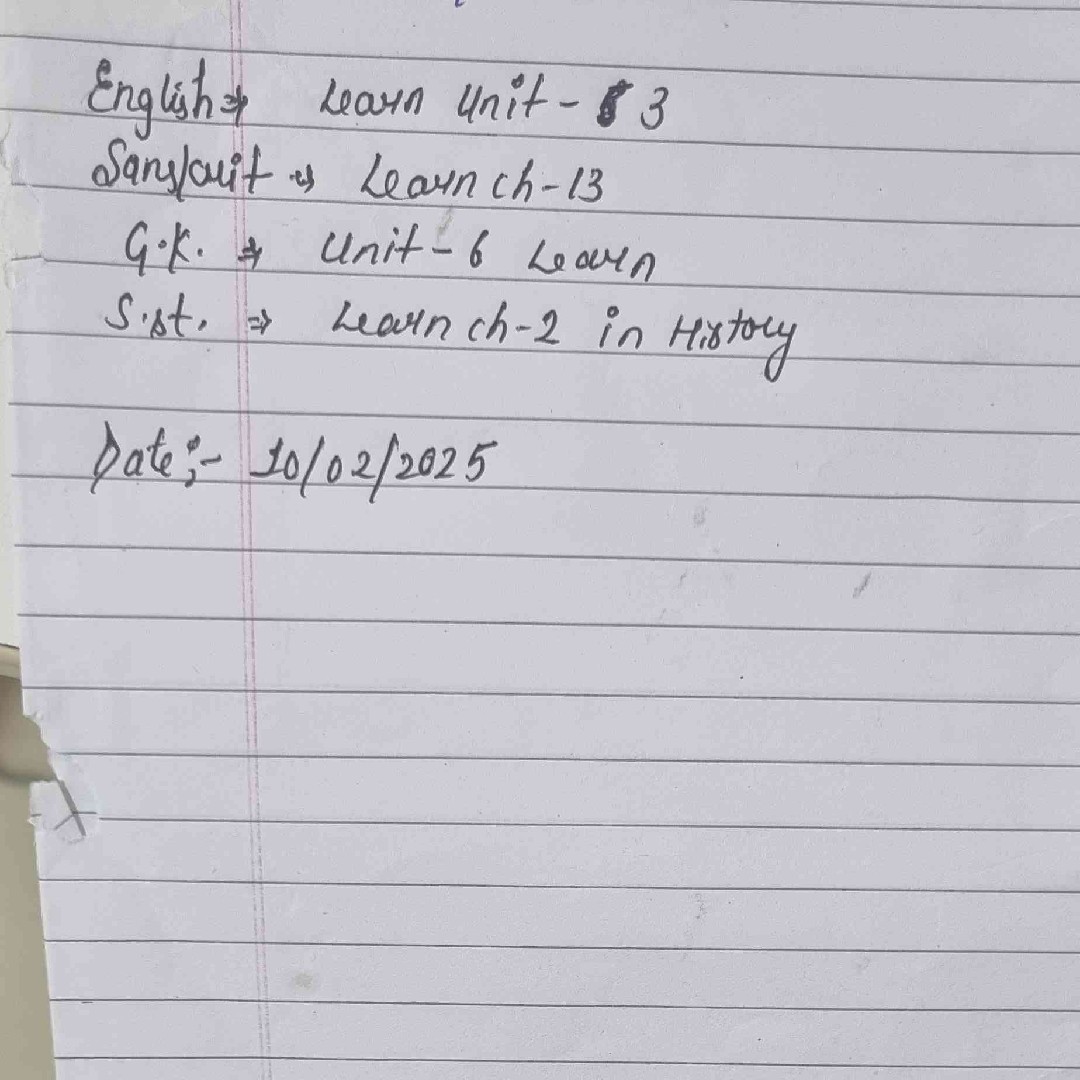 English ⇒ Learn Unit - 3
Sanskrit ⇒ Learn ch-13
G.K. ⇒ Unit-6 Learn
S.st. ⇒ Learn ch-2 in History
Date;- 10/02/2025